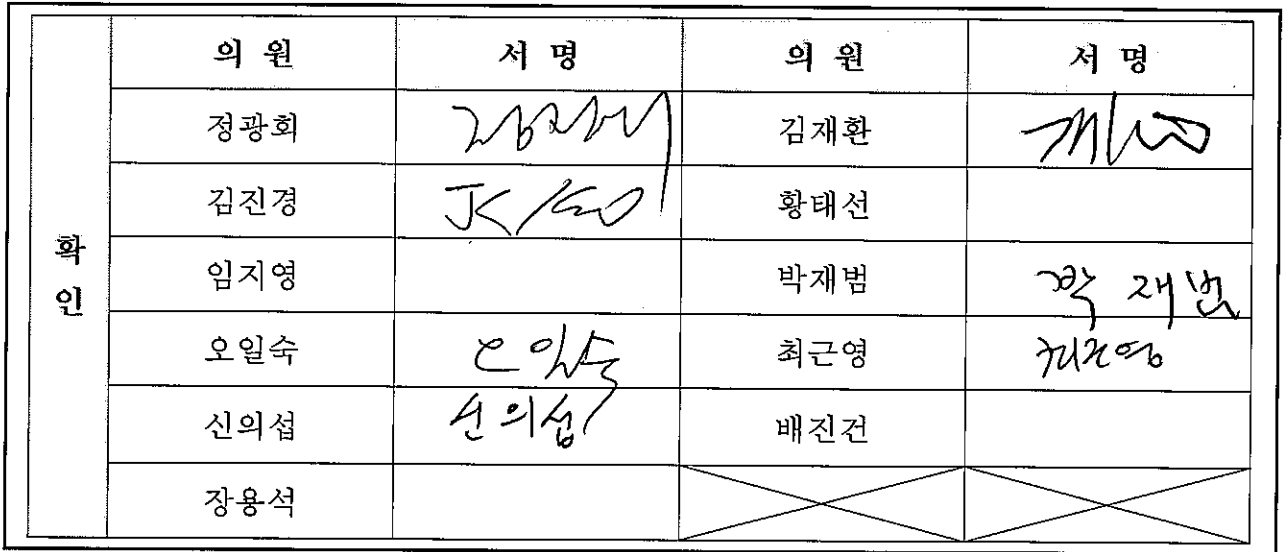 확인
의 원 서 명 의 원 서 명
정광회 김재환
김진경 JK 황태선
임지영 박재범 박 재범
오일숙 오일숙 최근영 최근영
신의섭 신의섭 배진건
장용석